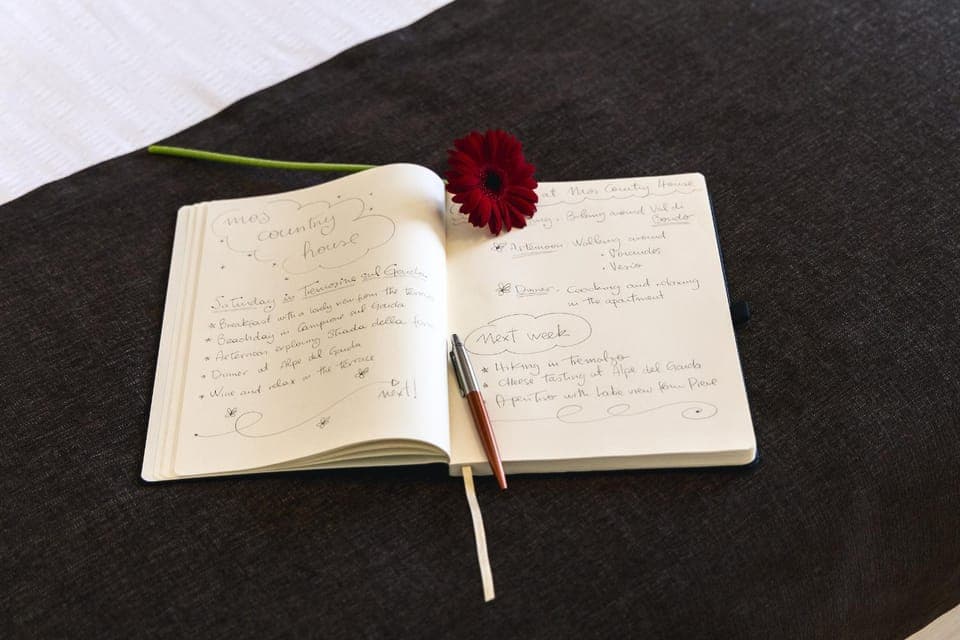 mos
country
house
Saturday in Tremosine sul Garda
* Breakfast with a lovely view from the terrace
* Beachday in Campione sul Garda
* Afternoon exploring Strada della forra
* Dinner at Alpe del Garda
* Wine and relax in the terrace
next!
at Mos Country House
Biking around Val di
Bondo
Afternoon Walking around
• Voiandes
• Vesio
Dinner. Coocking and relaxing
in the apartment
Next week
* Hiking in Tremalzo
* Cheese Tasting at Alpe del Garda
* Aperitivo with Lake view from Pieve